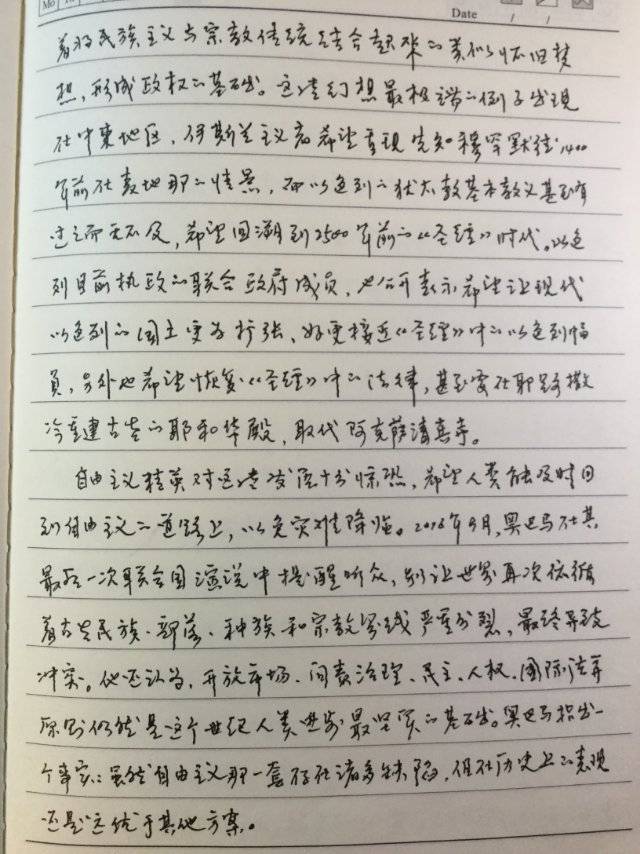 Mo
Date / /
着将民族主义与宗教传统结合起来的类似怀旧梦
想，形成政权的基础。这些幻想最极端的例子出现
在中東地区，伊斯兰主义者希望重现先知穆罕默德1400
年前在麦地那的情景，而以色列的犹太教基本教义甚至有
过之而无不及，希望回溯到2500年前的《圣經》时代。以色
列目前执政的联合政府成员，也公开表示希望让现代
以色列的国土更为扩张、好更接近《圣經》中的以色列幅
員，另外也希望恢复《圣經》中的法律，甚至要在耶路撒
冷重建古老的耶和华殿，取代阿克萨清真寺。
自由主义精英对这些发展十分惊恐，希望人类能及时回
到自由主义的道路上，以免灾难降临。2016年9月，奥巴马在其
最后一次联合国演说中提醒听众，别让世界再次依循
着古老民族、部落、种族和宗教界线严重分裂，最终导致
冲突。他还认为，开放市场、问责治理、民主、人权、国际法等
原则仍然是这个世纪人类进步最坚实的基础。奥巴马指出一
个事实：虽然自由主义那一套存在诸多缺陷，但在历史上的表现
还是远优于其他方案。